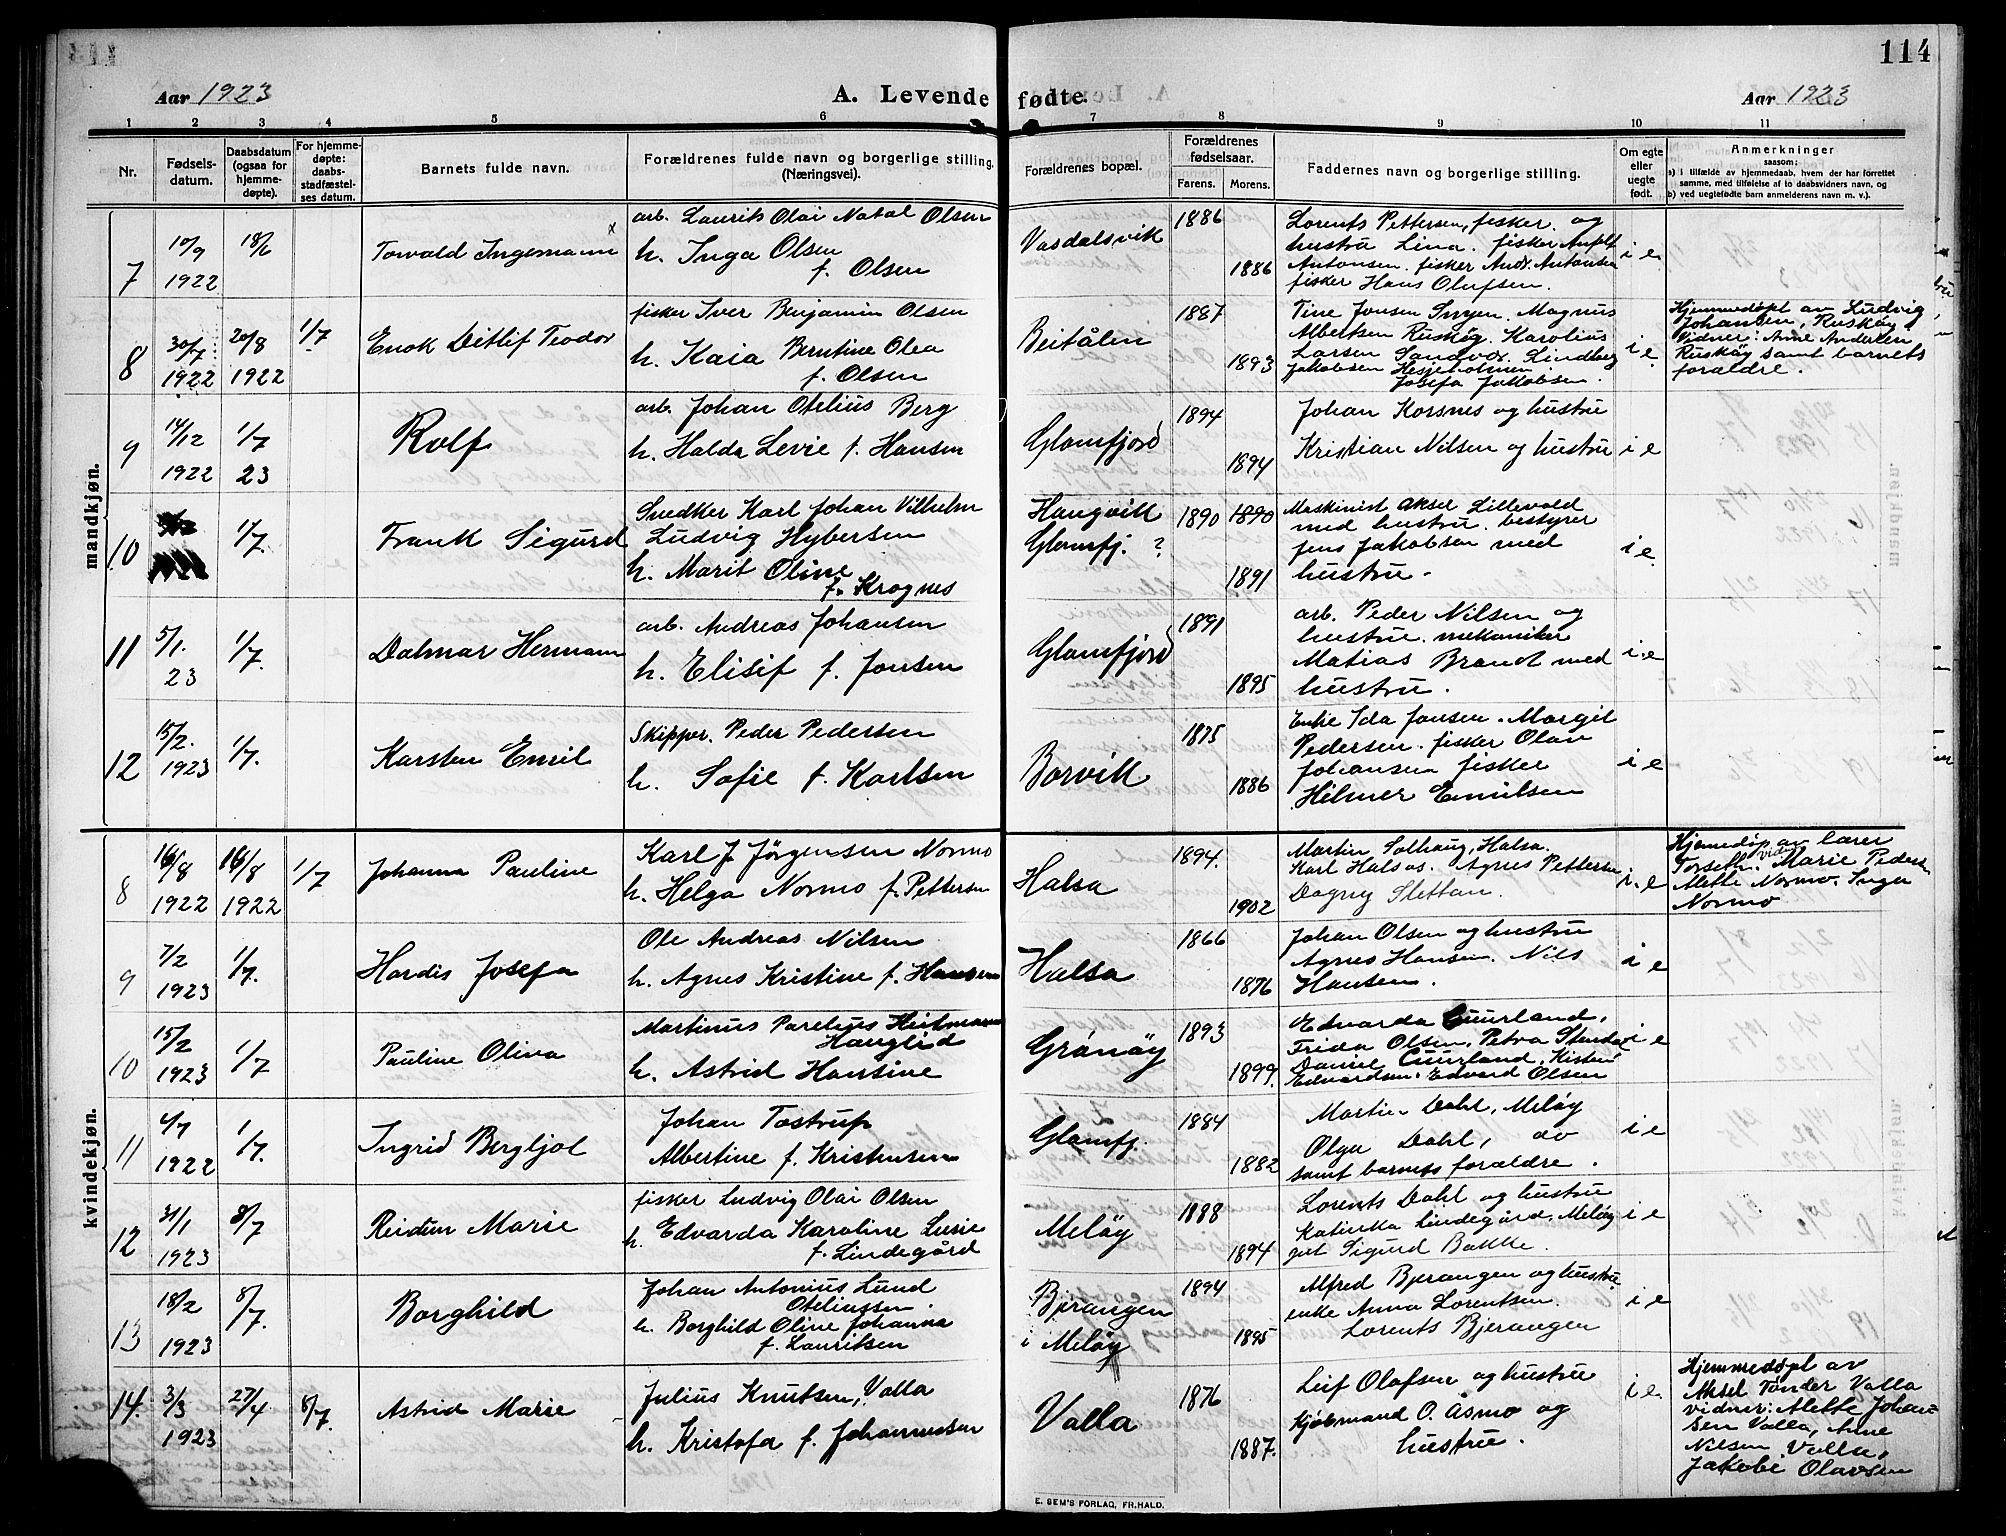 114
Aar 1923
A. Levende fødte.
Aar 1923
1 2 3 4 5 6 7 8 9 10 11
Nr.
Fødsels-
datum.
Daabsdatum
(ogsaa for
hjemme-
døpte).
For hjemme-
døpte:
daabs-
stadfæstel-
ses datum.
Barnets fulde navn.
Forældrenes fulde navn og borgerlige stilling.
(Næringsvei).
Forældrenes bopæl.
Forældrenes
fødselsaar.
Farens. Morens.
Faddernes navn og borgerlige stilling.
Om egte
eller
uegte
født.
Anmerkninger
saasom:
a) i tilfælde av hjemmedaab, hvem der har forrettet
samme, med tilføielse af to daabsvidners navn, og
b) ved uegtefødte barn anmelderens navn m. v.).
mandkjøn.
7
10/9
1922
18/6
Torvald Ingemann x
arb. Laurits Olai Natal Olsen
h. Inga Olsen
f. Olsen
Vasdalsvik
1886
1886
Lorents Pettersen, fisker. og
hustru Lina. fisker
Antonsen. fisker Andr. Antonsen
fisker Hans Olufsen.
i e
8
30/7
1922
20/8
1922
1/7
Enok Ditlif Teodor
fisker Iver Benjamin Olsen
h. Kaia Berntine Olea
f. Olsen
Beitålen
1887
1893
Tine Jonsen . Magnus
Albertsen Ruskøy. Karolius
Larsen Sandvær. Lindberg
Jakobsen Hesjeholmen
Josefa Jakobsen.
i e
Hjemmedøpt av Ludvig
Johansen, Ruskøy
Vidner: Anne Andersen
Ruskøy samt barnets
forældre.
9
14/12
1922
1/7
23
Rolf
arb. Johan Otelius Berg
h. Halda Levie f. Hansen
Glomfjord
1894
1894
Johan Korsnes og hustru
Kristian Nilsen og hustru
i e
10
1/7.
Frank Sigurd
Snedker Karl Johan Vilhelm
Ludvig Hybersen
h. Marit Oline
f. Krognes
Haugvik
Glomfj. ?
1890
1890
1891
Maskinist Aksel Lillevold
med hustru. bestyrer
Jens Jakobsen med
hustru.
i e
11
5/1.
23
1/7.
Dalmar Hermann
arb. Andreas Johansen
h. Elisif f. Jonsen
Glomfjord
1891
1895
arb. Peder Nilsen og
hustru. mekaniker
Matias Brandt med
hustru.
i e
12
15/2.
1923
1/7.
Karsten Emil
Skipper. Peder Pedersen
h. Sofie f. Karlsen
Borvik
1875
1886
Enke Ida Jonsen. Margit
Pedersen. fisker Olav
Johansen fisker
Hilmer Emilsen
i e
kvindekjøn.
8
16/8
1922
16/8
1922
1/7
Johanna Pauline
Karl J Jørgensen Normo
h. Helga Normo f. Pettersen
Halsa
1894.
1902
Martin Solhaug, Halsa.
Karl Halsos. Agnes Pettersen
Dagny Slettan.
i e
Hjemmedøp av lærer
Torseth. vidner Marie Pedersen
Mette Normo. Inger
Normo
9
7/2
1923
1/7.
Hardis Josefa
Ole Andreas Nilsen
h. Agnes Kristine f. Hansen
Halsa
1866
1876
Johan Olsen og hustru
Agnes Hansen. Nils
Hansen.
i e
10
15/2
1923
1/7
Pauline Oliva
Martinus Parelius Heitmann
Hauglid
h. Astrid Hansine
Grónøy
1893
1899.
Edvarda Cuurland,
Frida Olsen, Petra
Daniel Cuurland, Kirsten
Edvardsen. Edvard Olsen
i e
11
4/7
1922
1/7.
Ingrid Bergljot
Johan Tostrup
Albertine f. Kristensen
Glomfj.
1884
1882
Martin Dahl, Meløy
Olga Dahl, do
samt barnets forældre.
i e
12
31/1
1923
8/7
Reidun Marie
fisker Ludvig Olai Olsen
h. Edvarda Karoline Lusie
f. Lindegård
Meløy
1888
1894
Lorents Dahl og hustru
Katinka Lindegård, Meløy
gut Sigurd Bakke.
i e
13
18/2
1923
8/7.
Borghild
Johan Antonius Lund
Oteliussen.
h. Borghild Oline Johanna
f. Lauritsen
Bjerangen
i Meløy
1894
1895
Alfred Bjerangen og hustru.
enke Anna Lorentsen.
Lorents Bjerangen
i e
14.
3/3
1923
27/4
8/7.
Astrid Marie
Julius Knutsen, Valla
h. Kristofa f. Johannessen
Valla
1876
1887.
Leif Olafsen og hustru
Kjøbmand O. Åsmo og
hustru.
i e.
Hjemmedøpt av
Aksel Tønder Valla
vidner: Alette Johan-
sen Valla, Arne
Nilsen Valla,
Jakobi Olavsen
E. SEM'S FORLAG, FR.HALD.